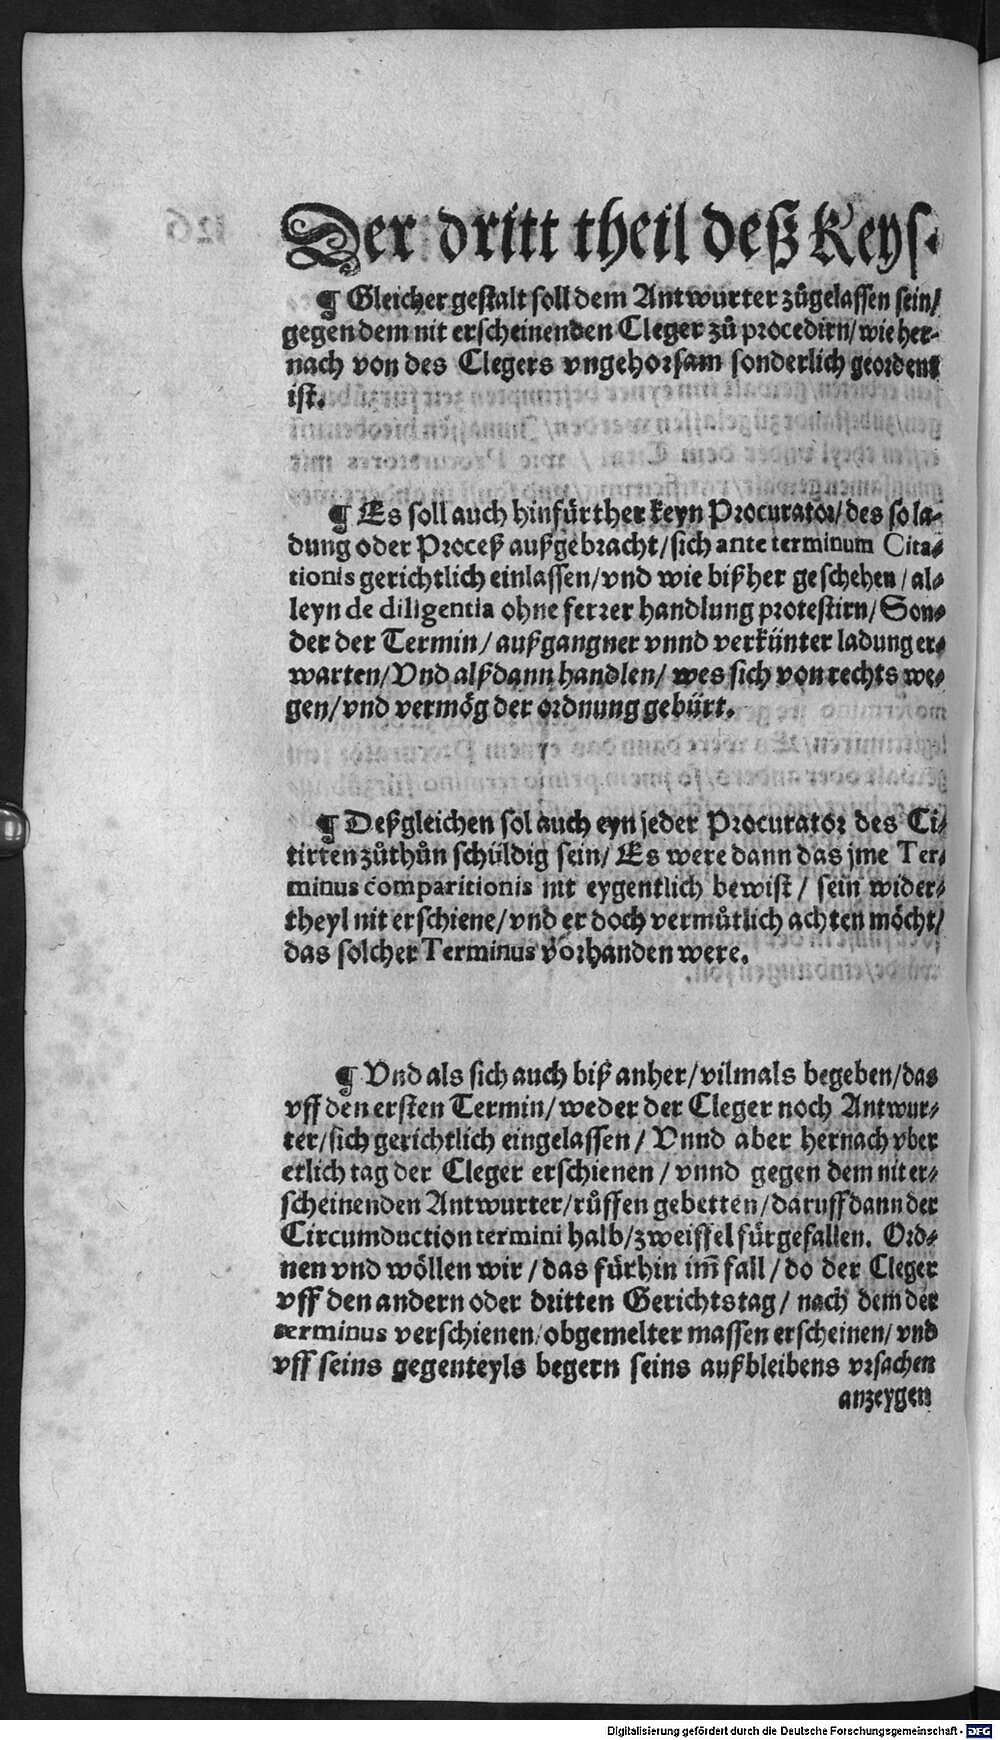 Der dritt theil deß Keys.
¶ Gleicher gestalt soll dem Antwurter zůgelassen sein/
gegen dem nit erscheinenden Cleger zů procedirn/ wie her-
nach von des Clegers vngehorsam sonderlich geordent
ist.
¶ Es soll auch hinfürther keyn Procurator/ des so la-
dung oder Proceß außgebracht/ sich ante terminum Cita-
tionis gerichtlich einlassen/ vnd wie bißher geschehen/ al-
leyn de diligentia ohne ferrer handlung protestirn/ Son-
der der Termin/ außgangner vnnd verkünter ladung er-
warten/ Vnd alßdann handlen/ wes sich von rechts we-
gen/ vnd vermög der ordnung gebürt.
¶ Deßgleichen sol auch eyn jeder Procurator des Ci-
tirten zůthůn schüldig sein/ Es were dann das jme Ter-
minus comparitionis nit eygentlich bewist/ sein wider-
theyl nit erschiene/ vnd er doch vermůtlich achten möcht/
das solcher Terminus vorhanden were.
¶ Vnd als sich auch biß anher/ vilmals begeben/ das
vff den ersten Termin/ weder der Cleger noch Antwur-
ter/ sich gerichtlich eingelassen/ Vnnd aber hernach vber
etlich tag der Cleger erschienen/ vnnd gegen dem nit er-
scheinenden Antwurter/ růffen gebetten/ daruff dann der
Circumduction termini halb/ zweiffel fürgefallen. Ord-
nen vnd wöllen wir/ das fürhin im̃ fall/ do der Cleger
vff den andern oder dritten Gerichtstag/ nach dem der
terminus verschienen/ obgemelter massen erscheinen/ vnd
vff seins gegenteyls begern seins außbleibens vrsachen
anzeygen
Digitalisierung gefördert durch die Deutsche Forschungsgemeinschaft - DFG